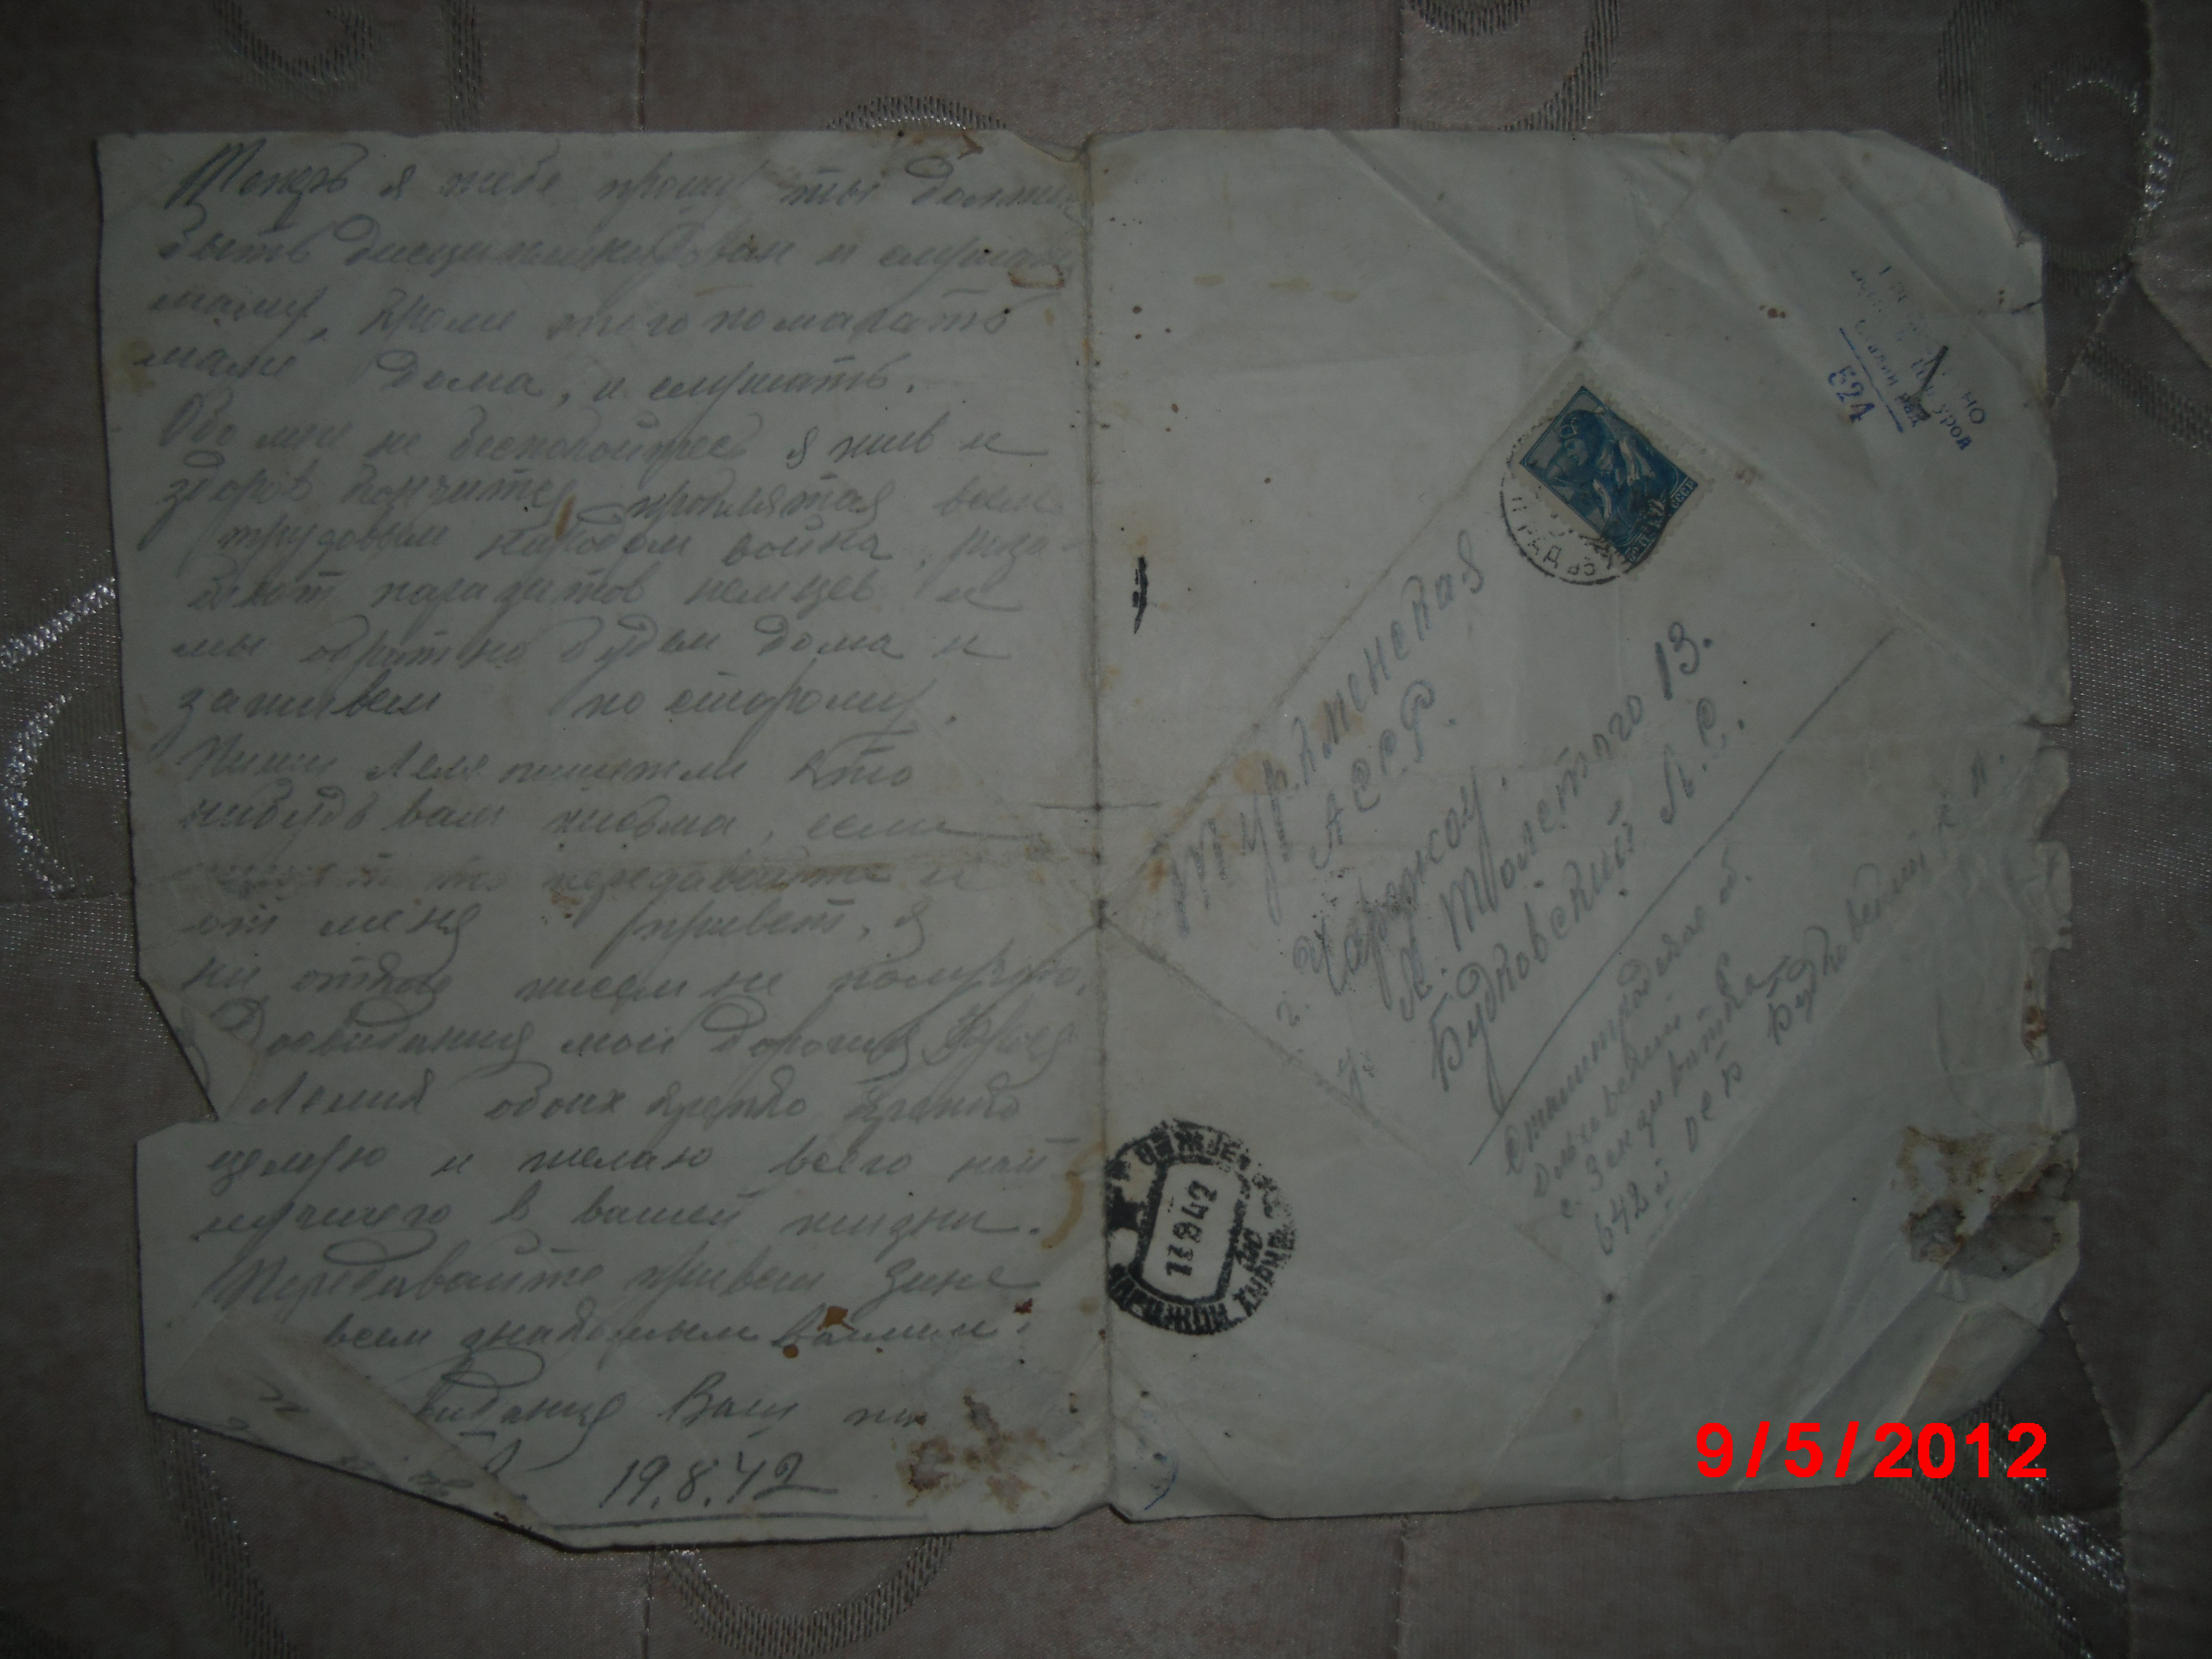 Теперь я тебе прошу ты должен
быть дисциплинирован и слушать
маму, кроме этого помагать
маме дома, и слушать.
Обо мне не беспокойтесь я жив и
здоров кончится проклятая всем
трудовым народом война, разо-
бьют паразитов немцев и
мы обратно будем дома и
заживем по старому.
Пиши Леля пишет ли кто
нибудь вам письма, если
то передавайте и
от меня привет, я
ни откого писем не получаю.
Досвидания мои дорогие
Леля обоих крепко крепко
целую и желаю всего наи
лучшего в вашей жизни.
Передавайте привет Зине
всем знакомым
видания Ваш
19.8.42
Туркменская
АССР.
г. Чарджоу.
у. Л. Толстого 13.
Будковский Л.С.
Сталинградская об.
с.
642й
Будковский
СССР
ГРАД
524
ЧАРДЖОУ
13 9 42